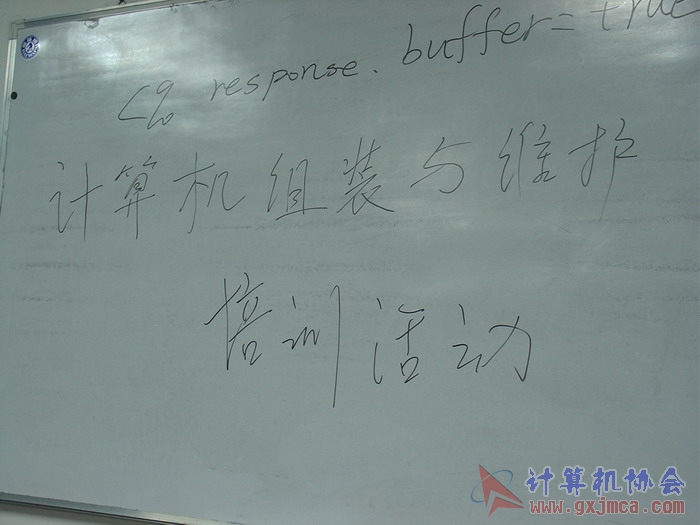 <% response. buffer = true
计算机组装与维护
培训活动
计算机协会
www.gxjmca.com